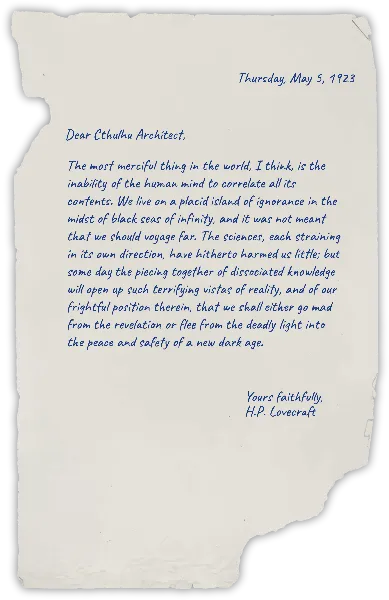 Thursday, May 5, 1923
Dear Cthulhu Architect,
The most merciful thing in the world, I think, is the
inability of the human mind to correlate all its
contents. We live on a placid island of ignorance in the
midst of black seas of infinity, and it was not meant
that we should voyage far. The sciences, each straining
in its own direction, have hitherto harmed us little; but
some day the piecing together of dissociated knowledge
will open up such terrifying vistas of reality, and of our
frightful position therein, that we shall either go mad
from the revelation or flee from the deadly light into
the peace and safety of a new dark age.
Yours faithfully,
H.P. Lovecraft